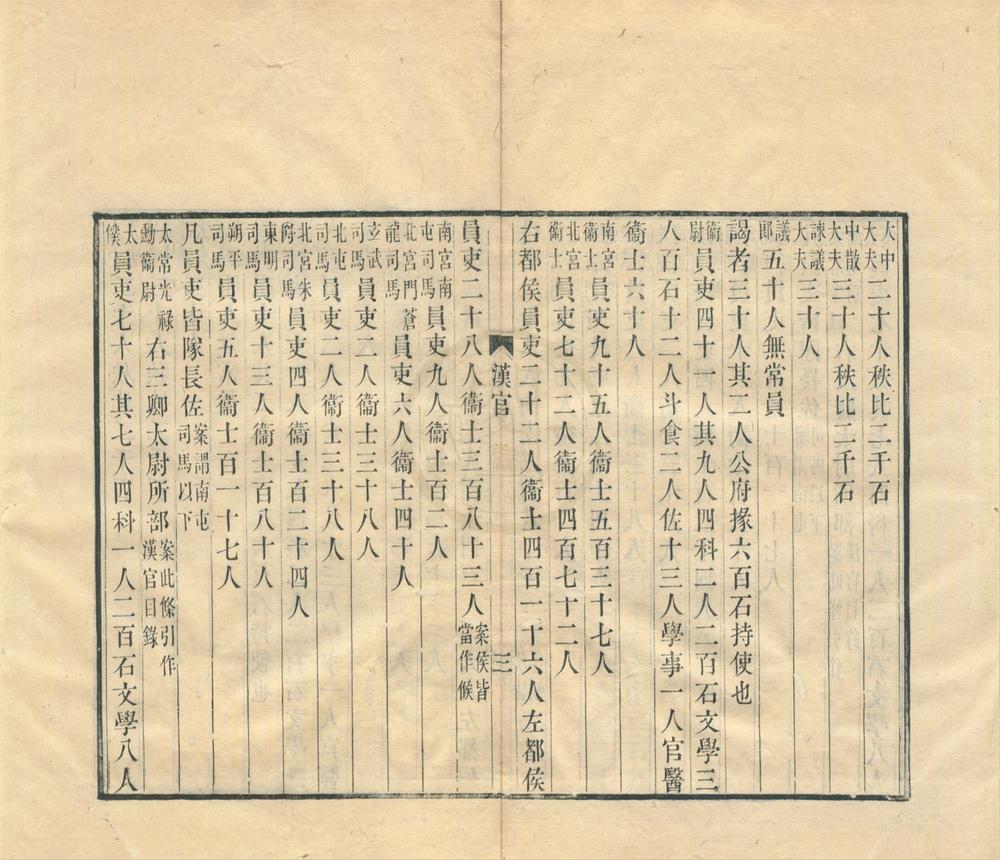 太中大夫二十人秩比二千石
中散大夫三十人秩比二千石
諫議大夫三十人
議郎五十人無常員
謁者三十人其二人公府掾六百石持使也
衞尉員吏四十一人其九人四科二人二百石文學三
人百石十二人斗食二人佐十三人學事一人官醫
衞士六十人
南宮衞士員吏九十五人衞士五百三十七人
北宮衞士員吏七十二人衞士四百七十二人
右都侯員吏二十二人衞士四百一十六人左都侯
漢官 三
員吏二十八人衞士三百八十三人案侯皆當作候
南宮南屯司馬員吏九人衞士百二人
北宮門蒼龍司馬員吏六人衞士四十人
立武司馬員吏二人衞士三十八人
北屯司馬員吏二人衞士三十八人
北宮朱爵司馬員吏四人衞士百二十四人
東明司馬員吏十三人衞士百八十人
朔平司馬員吏五人衞士百一十七人
凡員吏皆隊長佐案謂南屯司馬以下
太常光祿勳衞尉右三卿太尉所部案此條引作漢官目錄
太僕員吏七十人其七人四科一人二百石文學八人